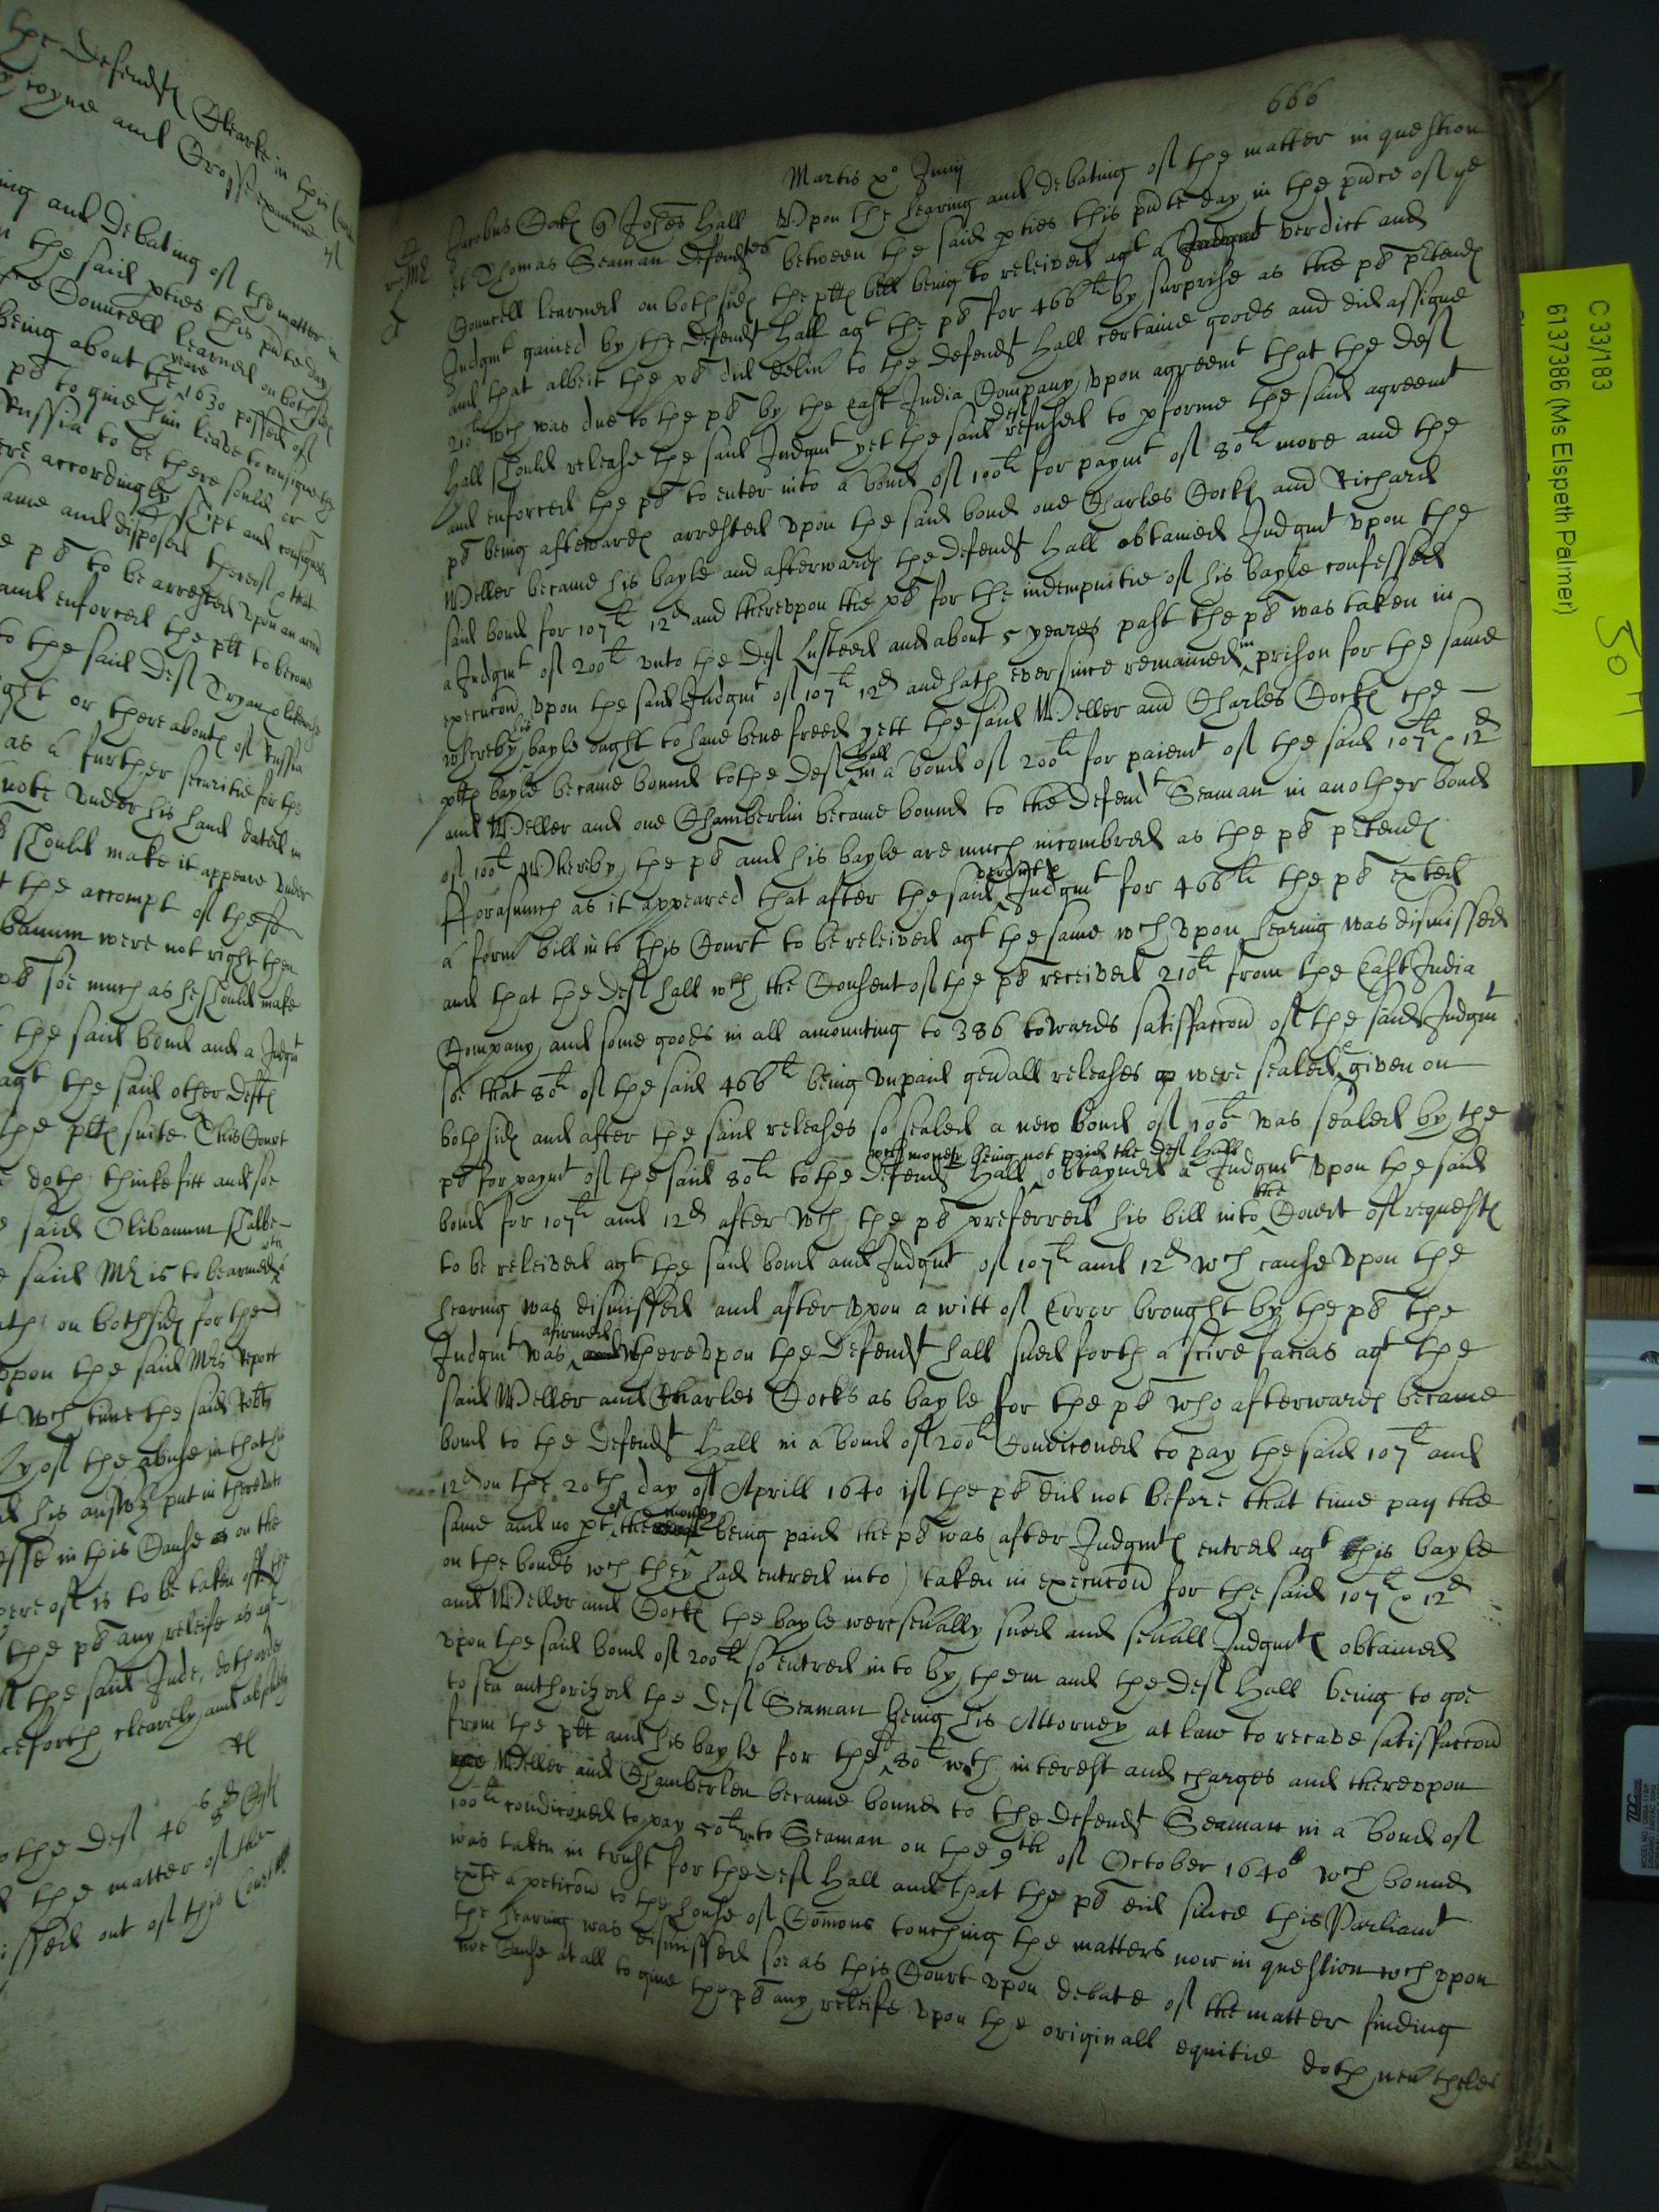 the defendts Clearke in this
coyne and Crosse examine
ing and debating of the matter in
the said pties this pnte day
re Councell learned on both sides
being about the yeare 1630 possed of
plt to give him leave to consigne
Russia to be there sould or
ere accordingly shipt and consigned
same and disposed thereof & that
e plt to be arrested upon an
and enforced the plt to become
to the said Deft Tryan & likewise
ght or there aboutes of Russia
as a further securitie for the
note under his hand dated in
should make it appeare under
t the accompt of these
banum were not right then
plt soe much as he should make
the said bond and a Judgmt
agt the said other Defts
the plts suite. This Court
doth thinke fitt and soe
said Olibanum shalbe
e said Mr is to be armed wth
ath on both sides for the
upon the said Mrs Report
t wch time the said
y of the abuse in that
d his answer put in thereunto
sse in this Cause on the
hereof is to be taken off
the plt any releife as agt
the said Jude, doth order
ceforth clearely and absolutely
o the Deft 46s 8d Costs
d the matter of the
issed out of this Court
666
Martis xo Junij
Jacobus Cockes qr Johes Hall Upon the hearing and debating of the matter in question
et Thomas Seaman Defendtes between the said pties this pnte day in the pnce of ye
Councell learned on both sides the plts bill being to releived agt a Judgmt verdict and
Judgmt gained by the Defendt Hall agt the plt for 466li by surprise as the plt ptends
and that albeit the plt did deliv to the Defendt Hall certaine goods and did assigne
210li wch was due to the plt by the East India Company upon agreemt that the Deft
Hall should release the said Judgmt yet the said Deft refused to pforme the said agreemt
and enforced the plt to enter into a bond of 100li for paymt of 80li more and the
plt being afterwards arrested upon the said bond one Charles Cockes and Richard
Weller became his bayle and afterwards the Defendt Hall obtained Judgmt upon the
said bond for 107li 12d and thereupon the plt for the indempnitie of his bayle confessed
a Judgmt of 200li unto the Deft Lusteed and about 5 yeares past the plt was taken in
execucon upon the said Judgmt of 107li 12d and hath ever since remained in prison for the same
whereby his bayle ought to have bene freed yett the said Weller and Charles Cockes the
plts bayle became bound to the Deft Hall in a bond of 200li for paiemt of the said 107li & 12d
and Weller and one Chamberlin became bound to the Defendt Seaman in another bond
of 100li Whereby the plt and his bayle are much incombred as the plt ptends
Fforasmuch as it appeared that after the said verdict & Judgmt for 466li the plt exted
a form bill into this Court to be releived agt the same wch upon hearing was dismissed
and that the Deft Hall wth the Consent of the plt received 210li from the East India
Company and some goods in all amounting to 386 towards satisfaccon of the said Judgmt
soe that 80li of the said 466li being unpaid genall releases were sealed & given on
both sides and after the said releases so sealed a new bond of 100li was sealed by the
plt for paymt of the said 80li to the Defendt Hall wch money being not paid the Deft Hall obtayned a Judgmt upon the said
bond for 107li and 12d after wch the plt preferred his bill into the Court of requests
to be releived agt the said bond and Judgmt of 107li and 12d wch cause upon the
hearing was dismissed and after upon a writt of Error brought by the plt the
Judgmt was afirmed and whereupon the Defendt Hall sued forth a scire facias agt the
said Weller and Charles Cocks as bayle for the plt who afterwards became
bond to the Defendt Hall in a bond of 200li Condiconed to pay the said 107li and
12d on the 20th day of Aprill 1640 if the plt did not before that time pay the
same and no pt of the money being paid the plt was (after Judgmts entred agt his bayle
on the bonds wch they had entred into) taken in execucon for the said 107li & 12d
and Weller and Cockes the bayle were sevally sued and sevall Judgmts obtained
upon the said bond of 200li so entred into by them and the Deft Hall being to goe
to sea authorized the Deft Seaman being his Attorney at law to receave satisfaccon
from the plt and his bayle for the sd 80li wth interest and charges and thereupon
Weller and Chamberlen became bound to the Defendt Seaman in a bond of
100li condiconed to pay 50li unto Seaman on the 9th of October 1640 wch bound
was taken in trust for the Deft Hall and that the plt did since this Parliamt
exte a peticon to the house of Comons touching the matters now in question wch upon
the hearing was dismissed soe as this Court upon debate of the matter finding
noe Cause at all to give the plt any releife upon the originall equitie doth neverthelesse
C 33/183
6137386 (Ms Elspeth Palmer)